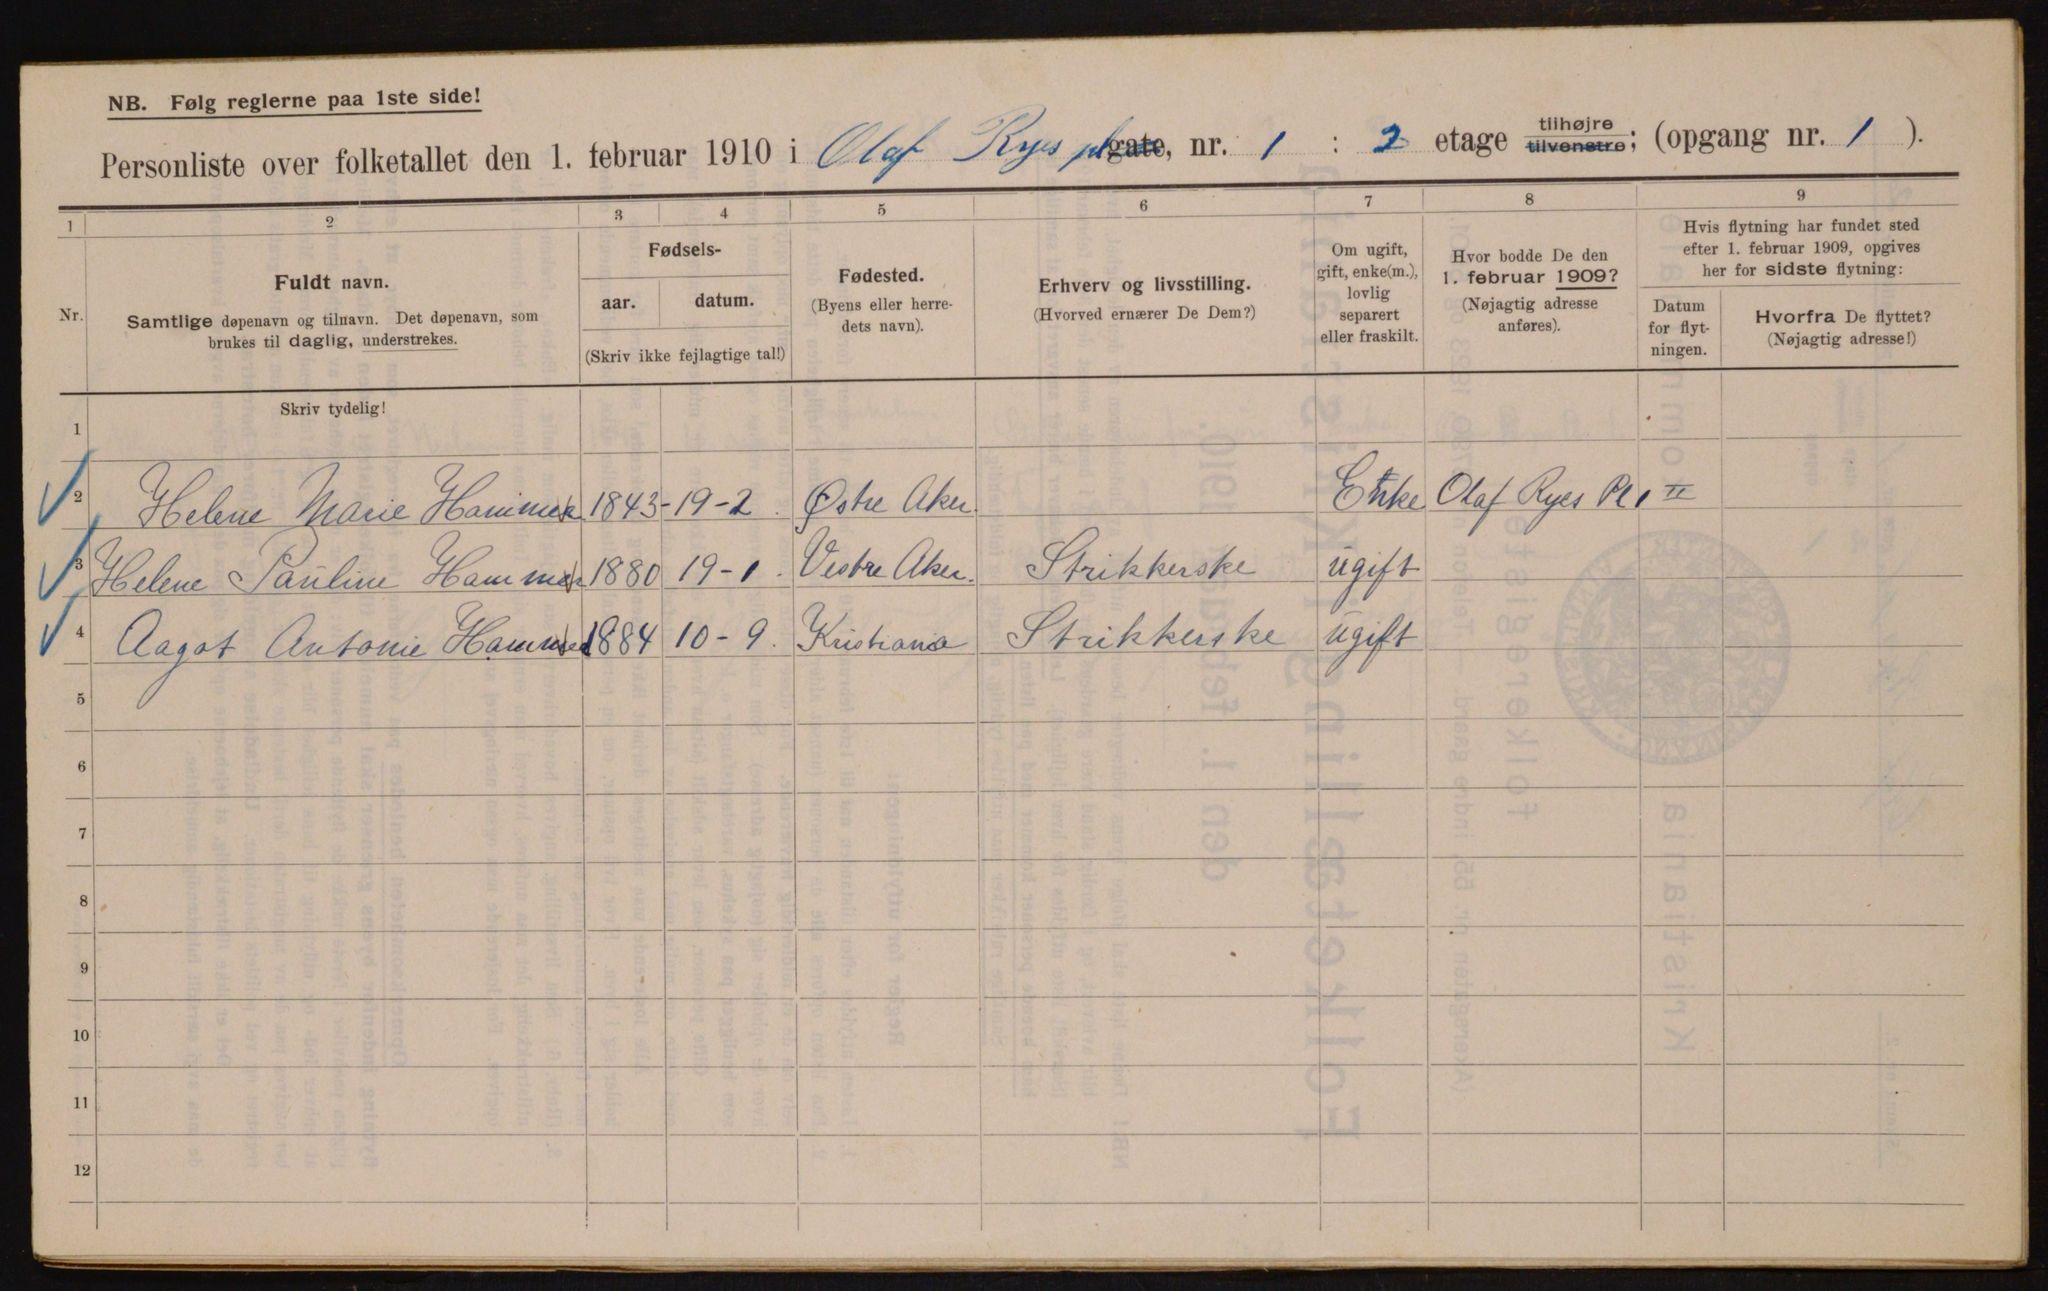 NB. Følg reglerne paa 1ste side!
Personliste over folketallet den 1. februar 1910 i Olaf Ryes pl gate, nr. 1 : 2 etage tilhøjre tilvenstre; (opgang nr. 1 ).
1 2 3 4 5 6 7 8 9
Nr.
Fuldt navn.
Samtlige døpenavn og tilnavn. Det døpenavn, som
brukes til daglig, understrekes.
Fødsels-
aar. datum.
(Skriv ikke fejlagtige tal!)
Fødested.
(Byens eller herre-
dets navn).
Erhverv og livsstilling.
(Hvorved ernærer De Dem?)
Om ugift,
gift, enke(m.),
lovlig
separert
eller fraskilt.
Hvor bodde De den
1. februar 1909?
(Nøjagtig adresse
anføres).
Hvis flytning har fundet sted
efter 1. februar 1909, opgives
her for sidste flytning:
Datum
for flyt-
ningen.
Hvorfra De flyttet?
(Nøjagtig adresse!)
Skriv tydelig!
1
2 Helene Marie 1843 - 19 - 2 Østre Aker. Enke Olaf Ryes Pl 1 II
3 Helene Pauline 1880 19 - 1 Vestre Aker. Strikkerske ugift
4 Aagot Antonie 1884 10 - 9. Kristiania Strikkerske ugift
5
6
7
8
9
10
11
12